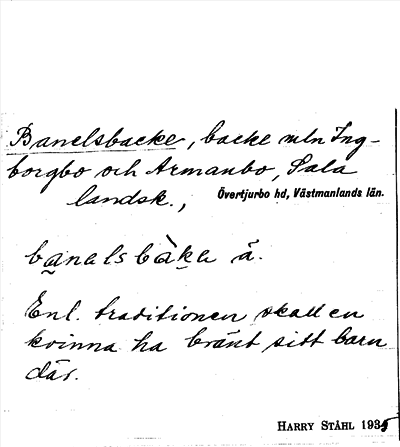 Banelsbacke, backe mln Ing-
borgbo och Armanbo, Sala
landsk., Övertjurbo hd, Västmanlands län.
banelsbàkɐ ä.
Enl. traditionen skall en
kvinna ha bränt sitt barn
där.
HARRY STÅHL 1935